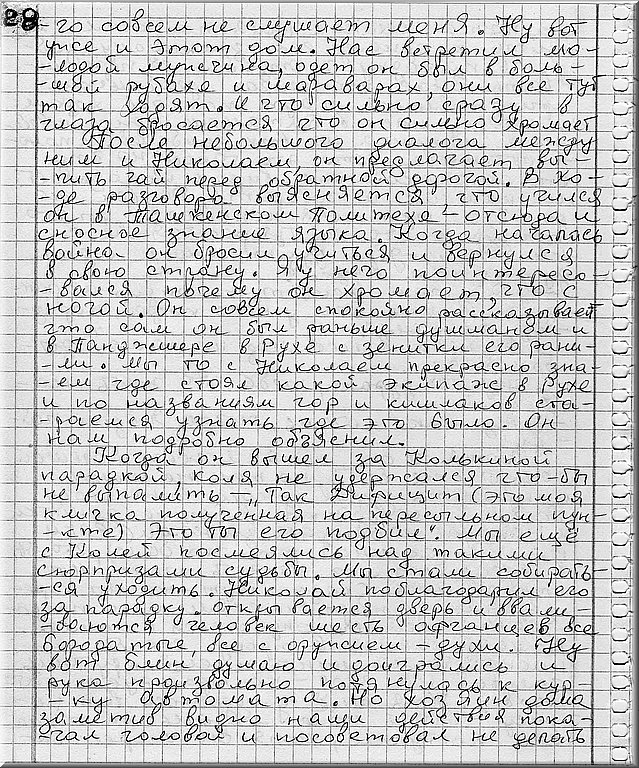 28
-го совсем не слушает меня. Ну вот
уже и этот дом. Нас встретил мо-
-лодой мужчина, одет он был в боль-
-шой рубахе и шараварах, они все тут
так ходят. И что сильно сразу в
глаза бросается что он сильно хромает
После небольшого диалога между
ним и Николаем, он предлагает вы-
-пить чай перед обратной дорогой. В хо-
-де разговора выясняется что учился
он в Ташкенском Политехе - отсюда и
сносное знание языка. Когда началась
война он бросил учиться и вернулся
в свою страну. Я у него поинтересо-
-вался почему он хромает, что с
ногой. Он совсем спокойно рассказывает
что сам он был раньше душманом и
в Панджшере в Рухе с зенитки его рани-
-ли. Мы то с Николаем прекрасно зна-
-ем где стоял какой экипаж в Рухе
и по названиям гор и кишлаков ста-
-раемся узнать где это было. Он
нам подробно объяснил.
Когда он вышел за Колькиной
парадкой, Коля не удержался что-бы
не выпалить - „Так Дифицит (это моя
кличка полученная на пересыльном пун-
-кте) Это ты его подбил". Мы ещё
с Колей посмеялись над такими
сюрпризами судьбы. Мы стали собирать-
-ся уходить. Николай поблагодарил его
за парадку. Открывается дверь и ввали-
-ваются человек шесть афганцев все
бородатые, все с оружием - духи. Ну
вот блин думаю и доигрались и
рука произвольно потянулась к кур-
-ку автомата. Но хозяин дома
заметив видно наши действия пока-
-чал головой и посоветовал не делать